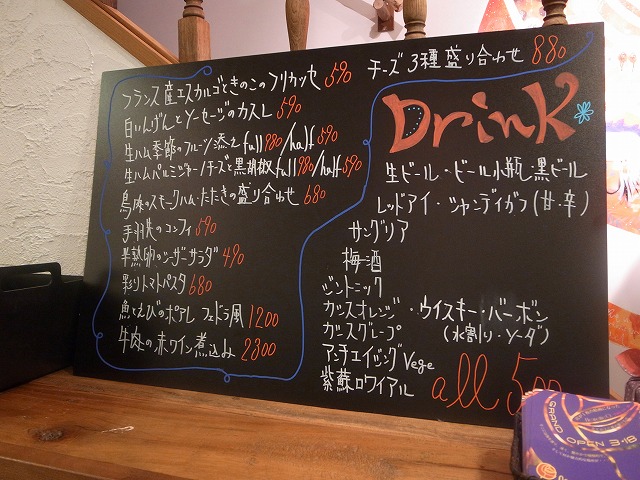 フランス産エスカルゴときのこのフリカッセ 590
白いんげんとソーセージのカスレ 590
生ハム季節のフルーツ添え full 980/half 590
生ハムパルミジャーノチーズと黒胡椒 full 980/half 590
鳥肉のスモークハム・たたきの盛り合わせ 680
手羽先のコンフィ 590
半熟卵のシーザーサラダ 490
彩りトマトパスタ 680
魚とえびのポアレ フェドラ風 1200
牛肉の赤ワイン煮込み 2300
チーズ3種盛り合わせ 880
Drink
生ビール・ビール小瓶・黒ビール
レッドアイ・シャンディガフ(甘・辛)
サングリア
梅酒
ジントニック
カシスオレンジ・ウイスキー・バーボン
カシスグレープ (水割り・ソーダ)
アンチエイジングVege
紫蘇ロワイアル
all 500
GRAND OPEN